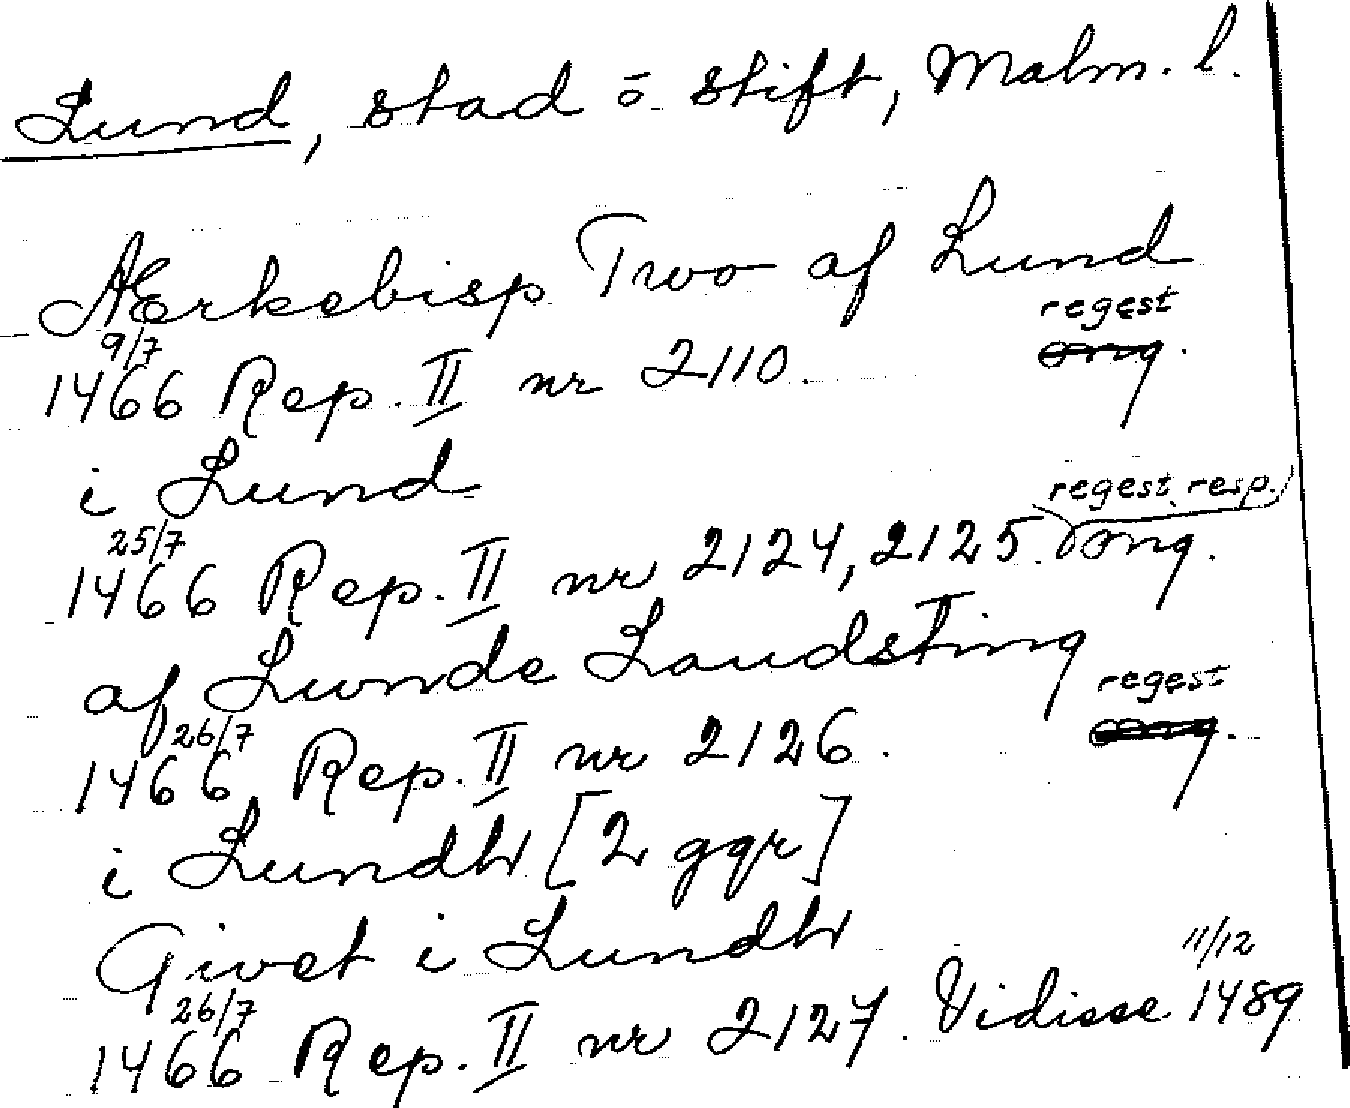 Lund, stad o. stift, Malm. l.
Ærkebisp Tuvo af Lund
regest
9/7
1466 Rep. II nr 2110. orig.
i Lund
regest resp.
25/7
1466 Rep. II nr 2124, 2125 orig.
af Lunde Landsting
regest
26/7
1466 Rep. II nr 2126. orig.
i Lundh [2 ggr]
Givet i Lundh
26/7 11/12
1466 Rep. II nr 2127. Vidisse 1489